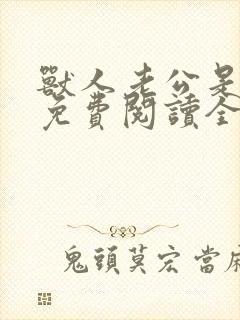 獸人老公是
免費閱讀全
鬼頭莫宏當